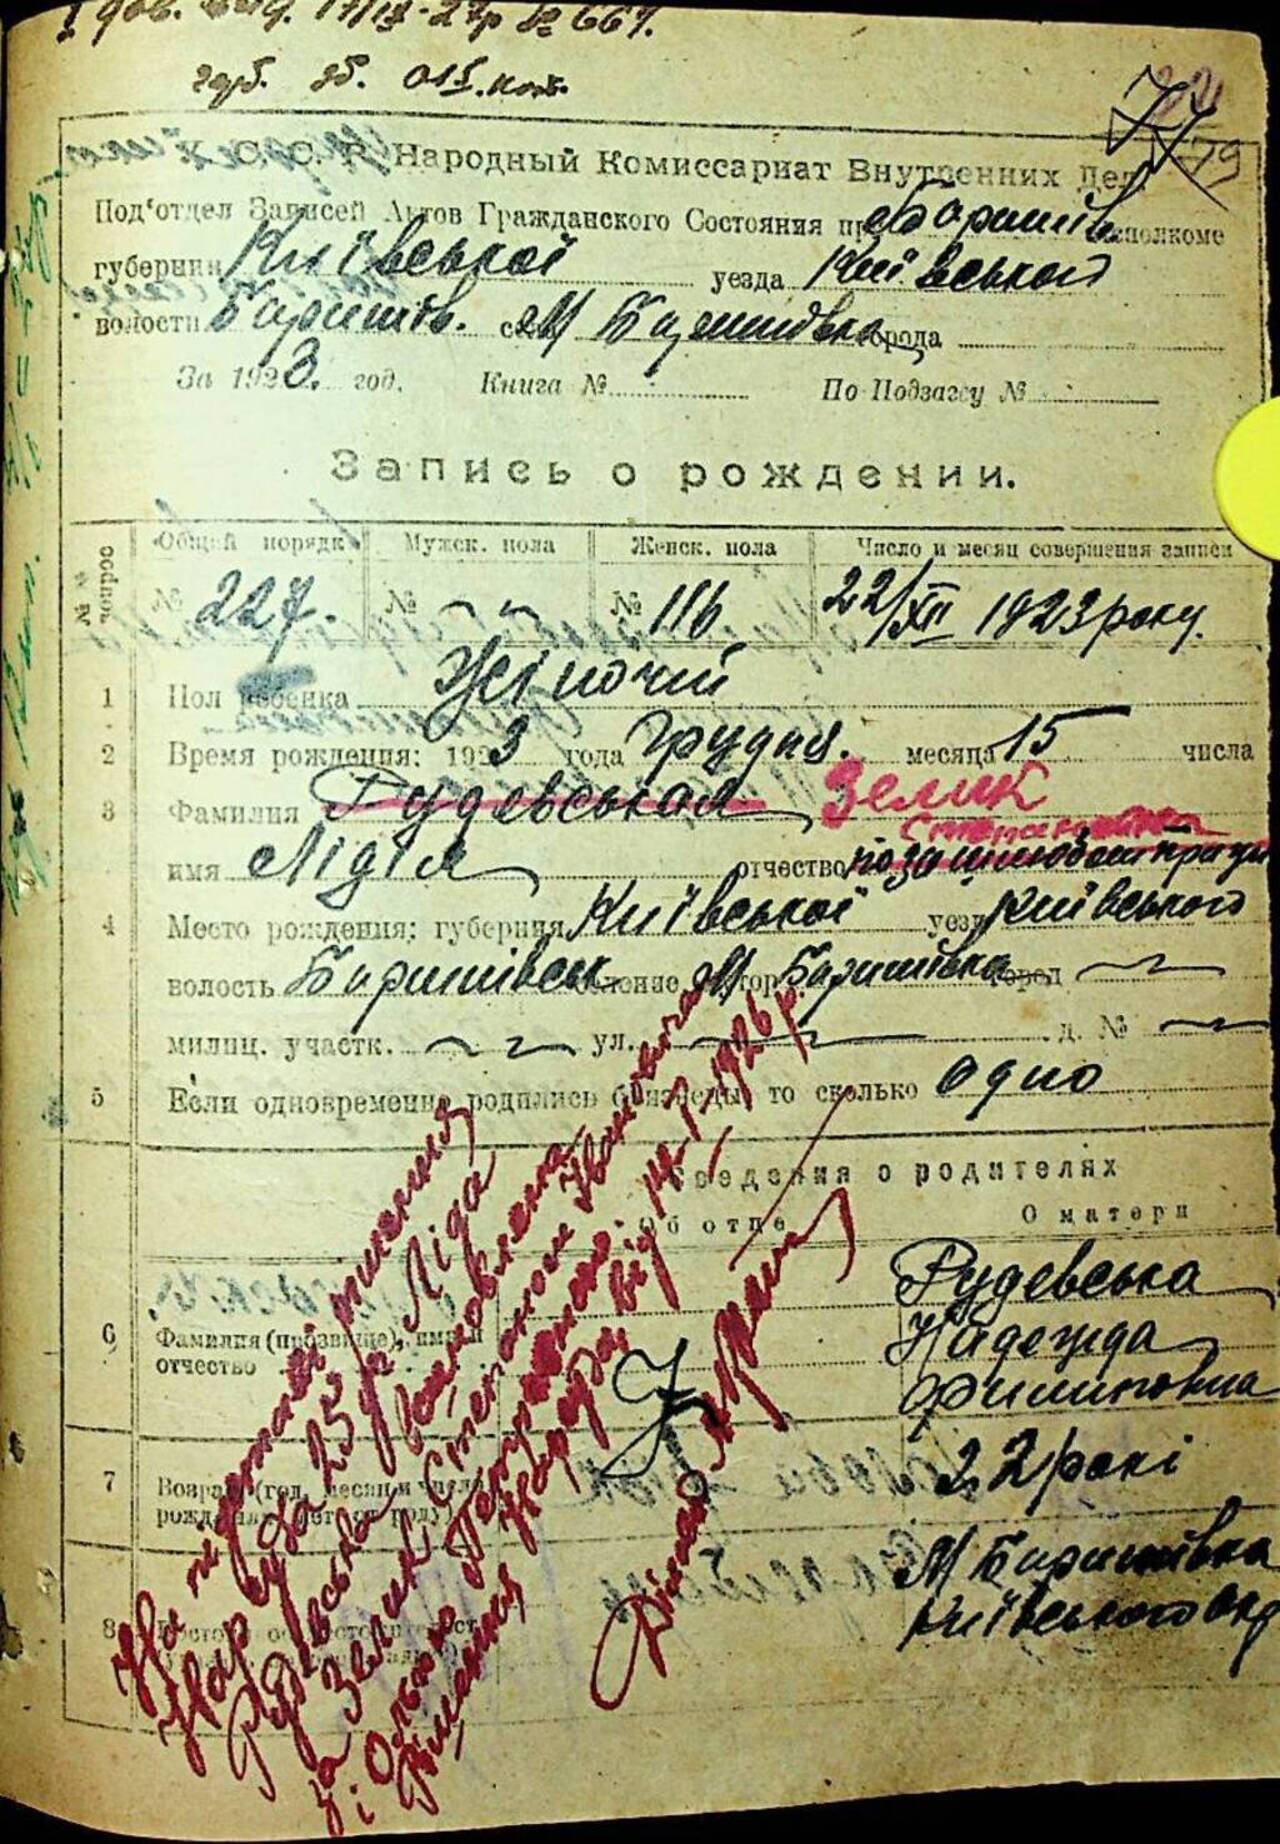 губ. від. О1Б. кož.
С. С. Р. Народный Комиссариат Внутренних Дел.
Под'отдел Записей Актов Гражданского Состояния при Баришів исполкоме
губернии Київської уезда Київського
волости Баришів. села М Баришівка города
За 1923. год. Книга № По Подзагсу №
Запись о рождении.
№№ вопрос Общий порядк Мужск. пола Женск. пола Число и месяц совершения записи
№ 227. № № 116 22/XII 1923 року.
1 Пол ребенка Жіночий
2 Время рождения: 1923 года Грудня. месяца 15 числа
3 Фамилия Рудевськая Зелик
Степановна
имя Лідія отчество поза шлюбом
4 Место рождения: губерния Київської уезд Київського
волость Баришівськ селение М Баришівка город
милиц. участк. ул. д. №
5 Если одновременно родились близнецы то сколько одно
Сведения о родителях
Об отце О матери
6 Фамилия (прозвище), имя и отчество
Рудевська
Надежда
Филиповна
7 Возраст (год, месяц и число рождения лет от роду)
22 роки
8
М Баришівка
Київського окр
На підставі рішення
Нар суда 25 р Ліда
Рудевська
за Зелик Степаном Івановичем
і Ольгою Петровною.
Рішення Нарсуда від 14-V-1926 р.